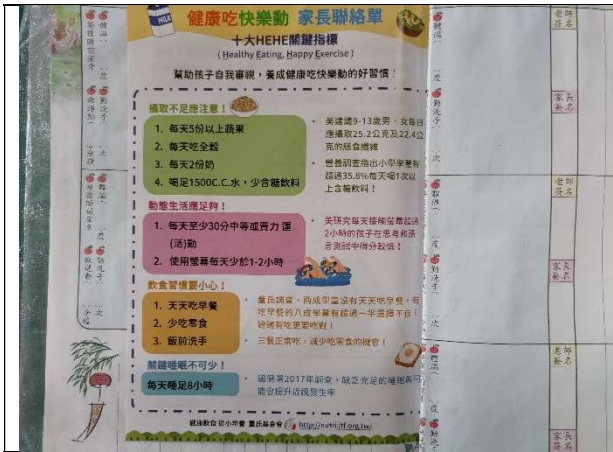 MILK
健康吃快樂動 家長聯絡單
十大HEHE關鍵指標
(Healthy Eating, Happy Exercise)
幫助孩子自我審視，養成健康吃快樂動的好習慣！
攝取不足應注意！
1. 每天5份以上蔬果
2. 每天吃全穀
3. 每天2份奶
4. 喝足1500C.C.水，少含糖飲料
美建議9-13歲男、女每日
應攝取25.2公克及22.4公
克的膳食纖維
營養調查指出小學學童有
超過35.8%每天喝1次以
上含糖飲料！
動態生活應足夠！
1. 每天至少30分中等或費力 運
(活)動
2. 使用螢幕每天少於1-2小時
美研究每天接觸螢幕超過
2小時的孩子在思考和語
言測試中得分較低！
飲食習慣要小心！
1. 天天吃早餐
2. 少吃零食
3. 飯前洗手
董氏調查，兩成學童沒有天天吃早餐，有
吃早餐的八成學童有超過一半選擇不佳！
三餐正常吃，減少吃零食的機會！
關鍵睡眠不可少！
每天睡足8小時
國健署2017年調查，缺乏充足的睡眠與可
能會提升近視發生率
健康飲食 從小培養 董氏基金會 http://nutri.jtf.org.tw/
體溫
度
勤洗手
次
老師
簽名
家長
簽名
體溫
度
勤洗手
次
老師
簽名
家長
簽名
體溫
度
勤洗手
老師
簽名
家長
簽名